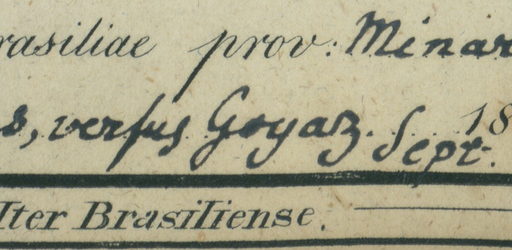 rasiliae prov: Minar
s, versus Goyaz. Sept. 18
Iter Brasiliense.